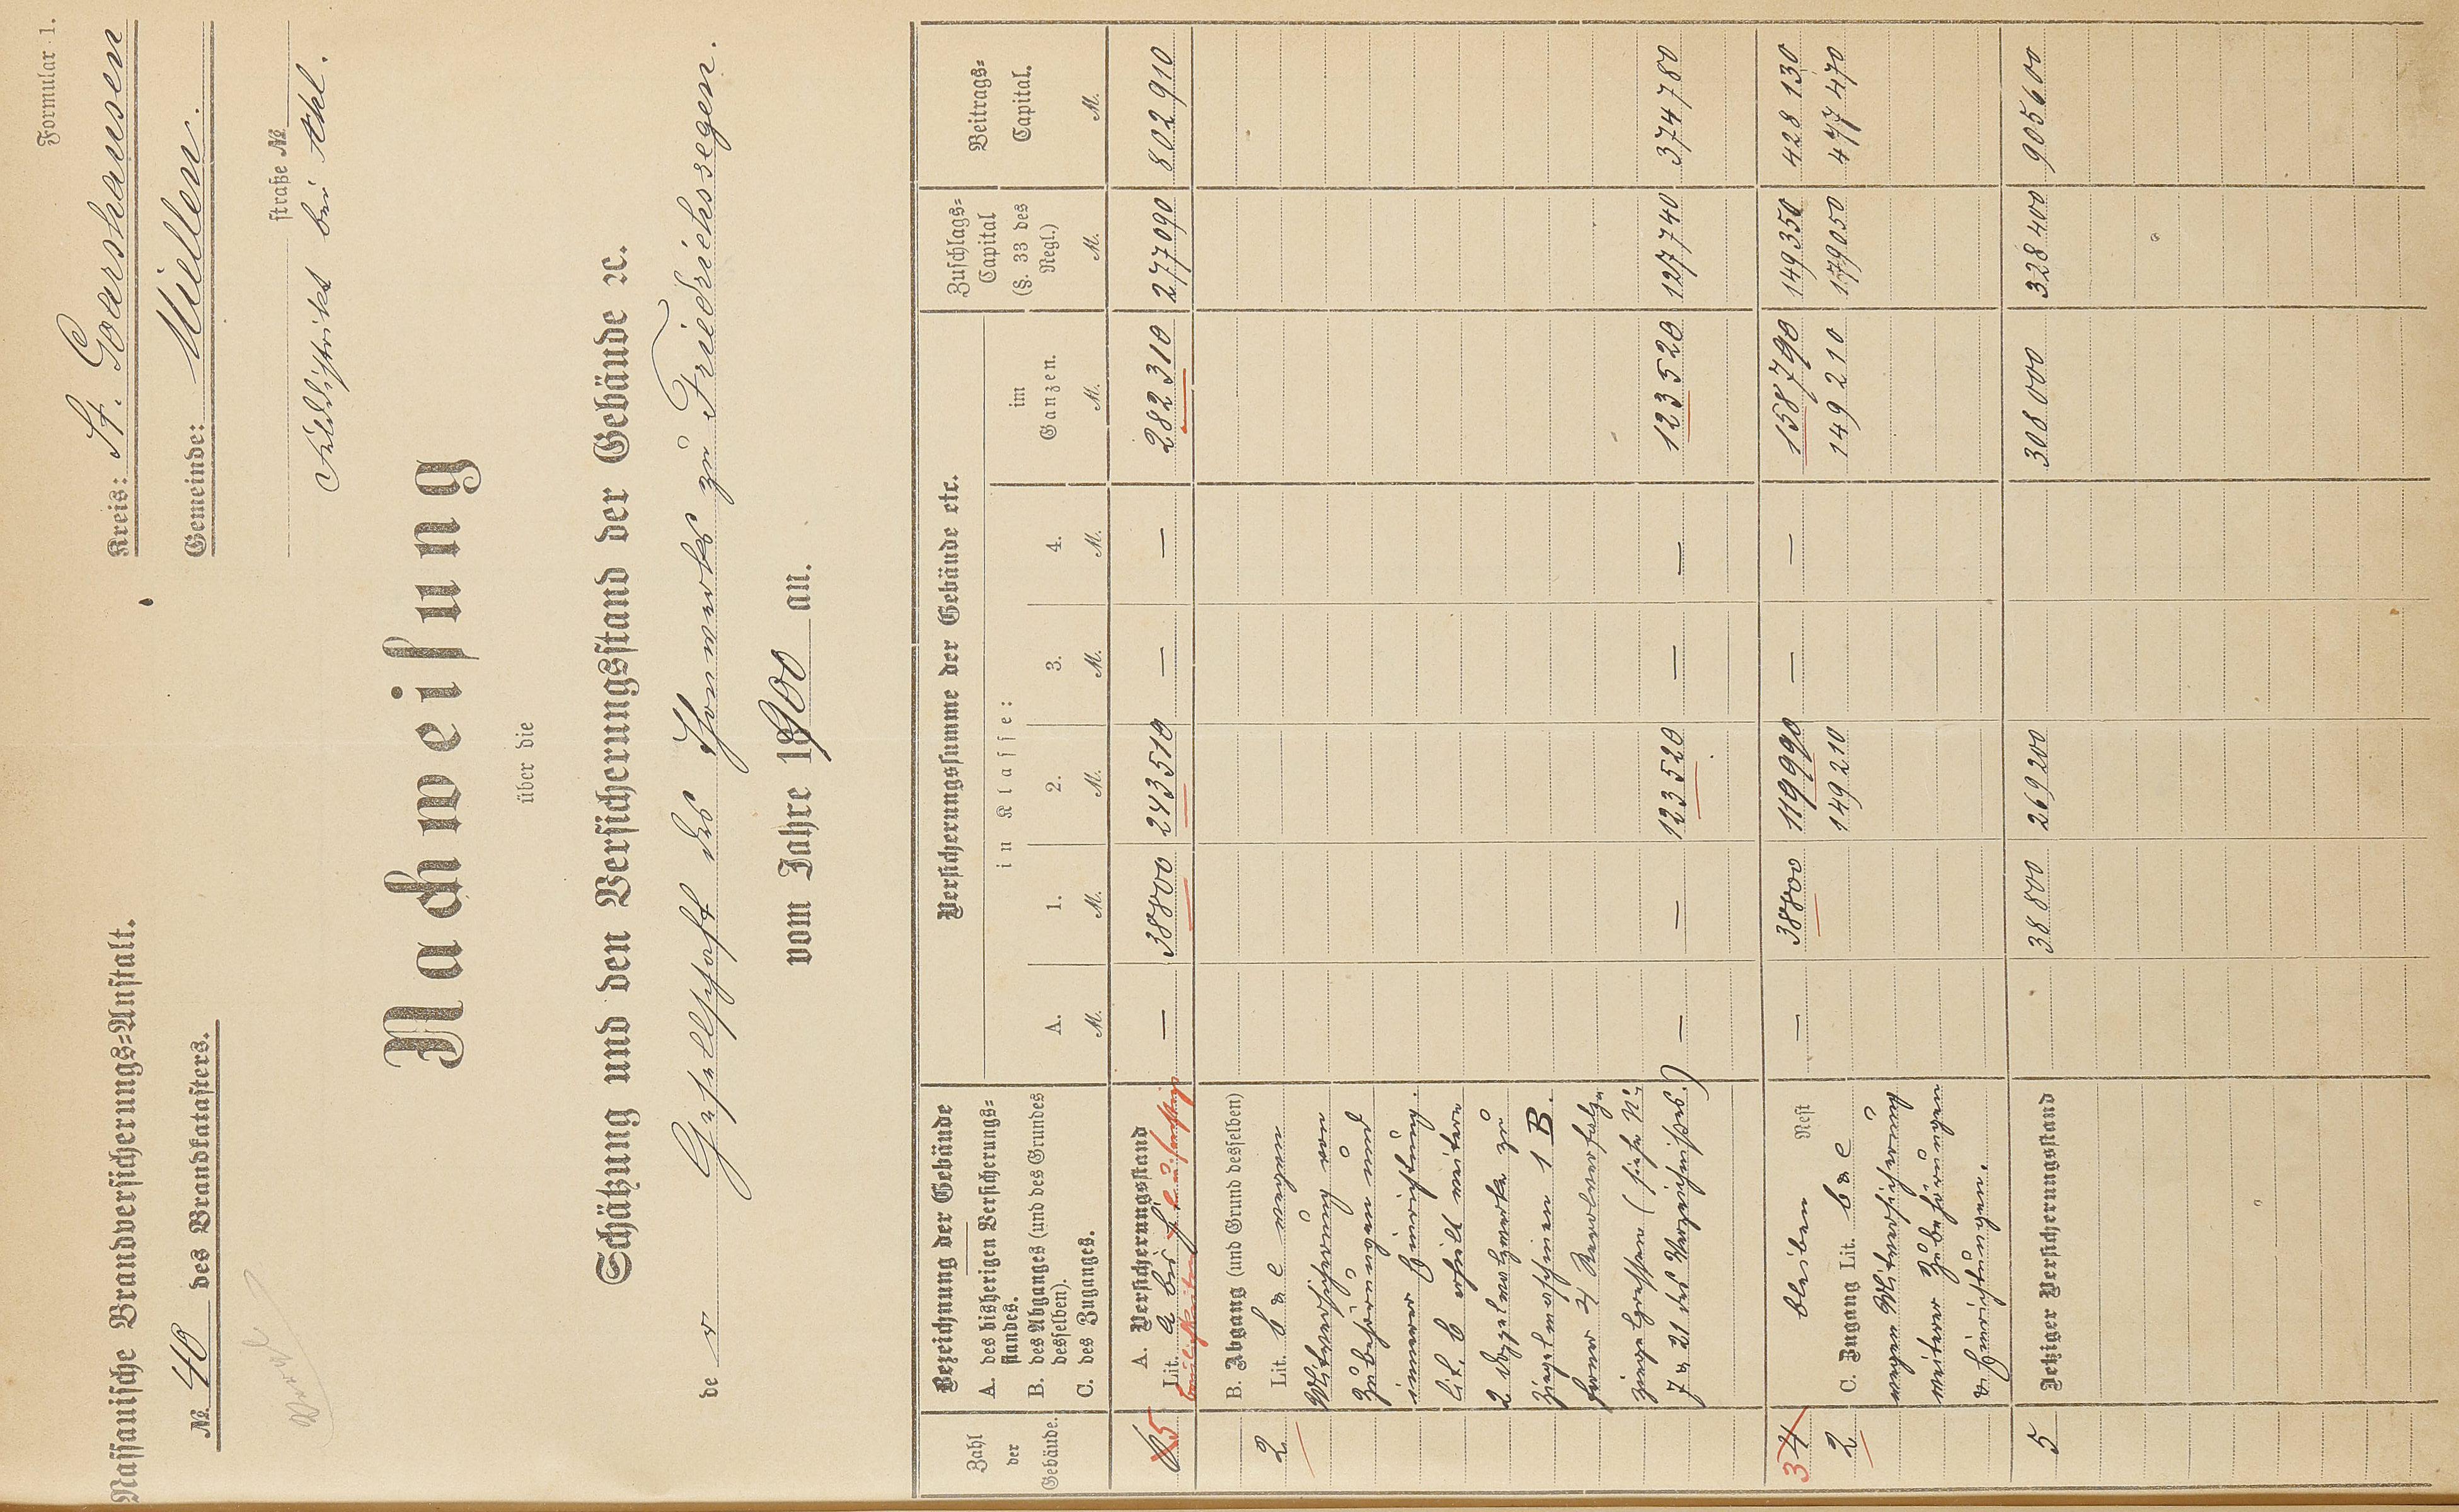 Formular 1.
Nassauische Brandversicherungs=Anstalt.
Kreis: St. Goarshausen
№ 40 des Brandkatasters.
Gemeinde: Miellen.
straße №
Felddistrikt bei Ahl.
Nachweisung
über die
Schätzung und den Versicherungsstand der Gebäude ꝛc.
de r Gesellschaft des Thonwerks zu Friedrichssegen.
vom Jahre 1900 an.
Zahl der Gebäude.
Bezeichnung der Gebäude
A. des bisherigen Versicherungs=
standes.
B. des Abganges (und des Grundes
desselben).
C. des Zuganges.
Versicherungssumme der Gebäude etc.
in Klasse:
A. 1. 2. 3. 4.
im Ganzen.
Zuschlags=
Capital
(§. 33 des
Regl.)
Beitrags=
Capital.
M. M. M. M. M. M. M. M.
A. Versicherungsstand
6 5 Lit. a bis f — 38800 243510 — — 282310 277090 802910
B. Abgang (und Grund desselben)
2 Lit. b & e wegen
Mitversicherung von
Zubehörungen und
innerer Einrichtung.
Lit. b erhielt weitere
2 Doppelvorgewerke zu
Ziegelmaschinen 1 B.
ferner 4 Revolverfalz-
ziegelpressen (siehe №
7 & 21 des Verzeichnisses.) — — 123520 — — 123520 127740 374780
3 4 bleiben Rest — 38800 119990 — — 158790 149350 428130
2 C. Zugang Lit. b & e 149210 149210 179050 477470
wegen Mitversicherung
weiterer Zubehörungen
& Einrichtungen.
5 Jetziger Versicherungsstand 38800 269200 308000 328400 905600